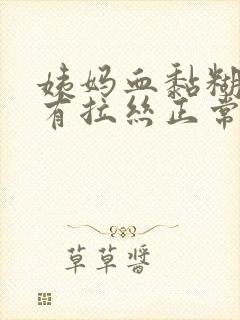 姨妈血黏糊
有拉丝正常
草草醬